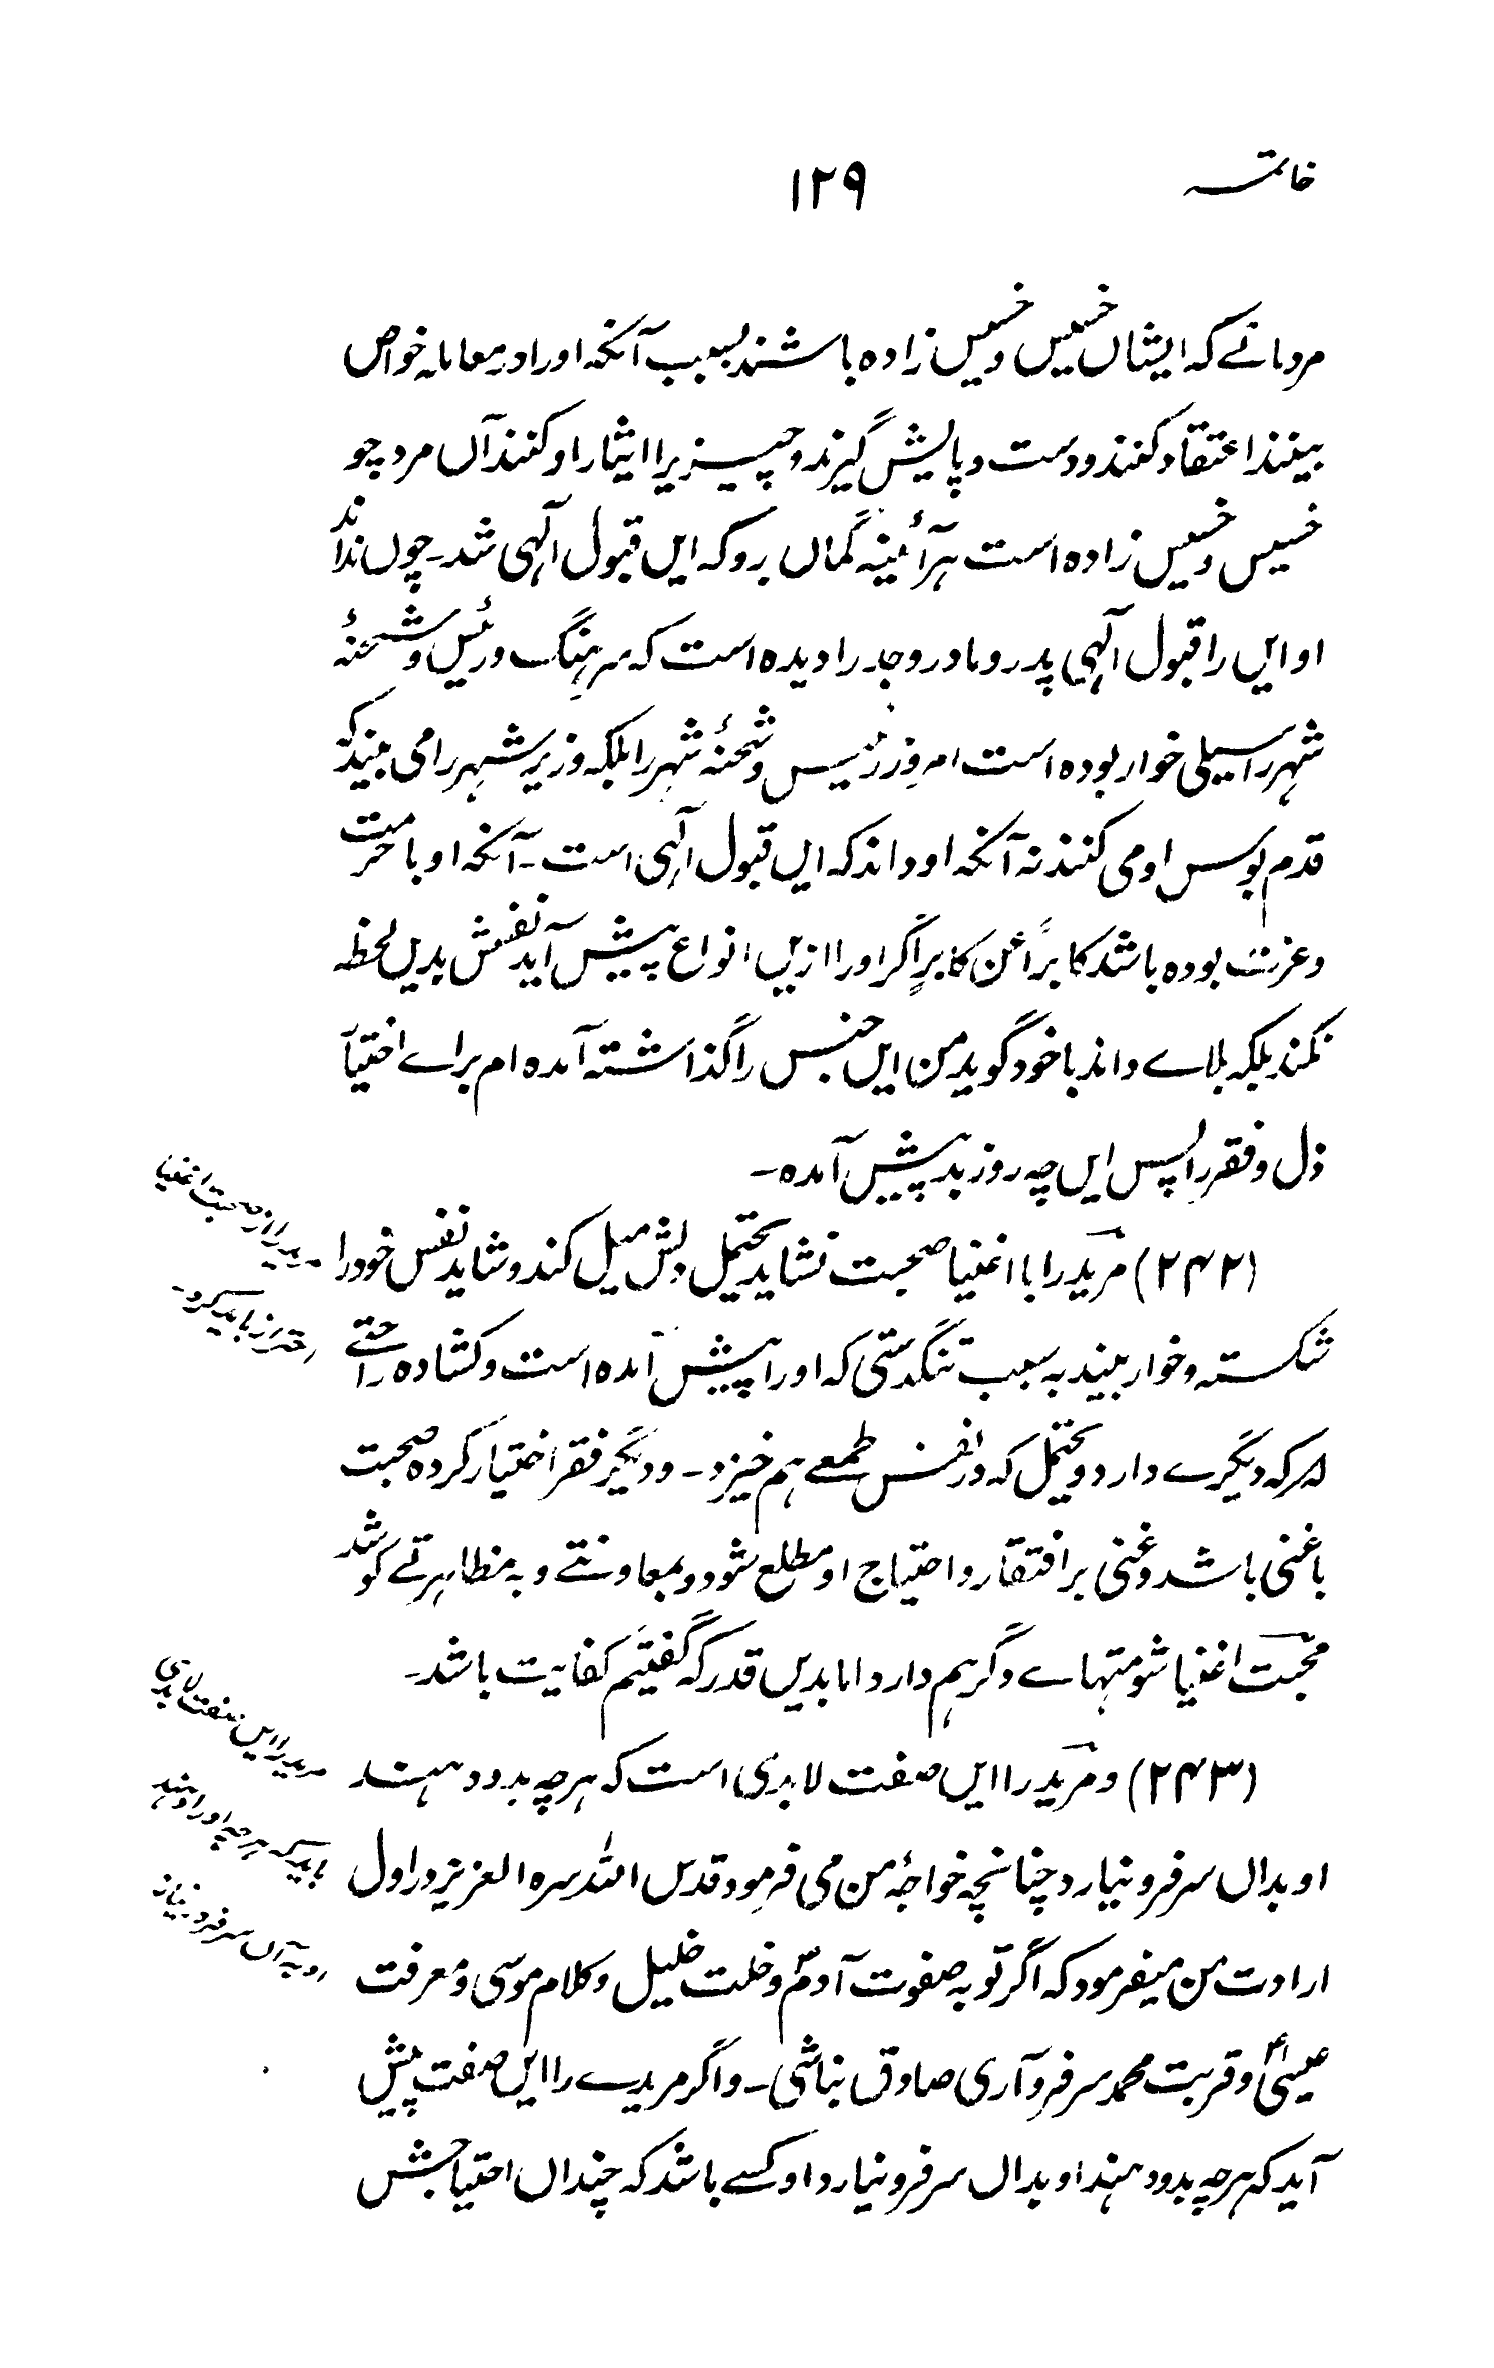 خاتمہ
۱۲۹
مردمانے کہ ایشاں خسیس و خسیس زادہ باشند بسبب آنکہ او را در معاملہ خواص
بینند اعتقاد کنند و دست و پایش گیرند و چیزیرا ایثار او کنند آں مرد چو
خسیس و خسیس زادہ است ہر آئینہ گماں برو کہ ایں قبول آلہی شد۔ چوں نداند
او ایں را قبول آلہی پدر و مادر و جد را دیدہ است کہ سرہنگ و رئیس و شحنۂ
شہر را سیلی خوار بودہ است امروز رئیس و شحنۂ شہر را بلکہ وزیر شہر را می بیند کہ
قدم بوس او می کنند نہ آنکہ او داند کہ ایں قبول آلہی است۔ آنکہ او با حرمت
و عزت بودہ باشد کابراً عن کابرٍ اگر او را ازیں انواع پیش آید نفسش بدیں لحظہ
نکند بلکہ بلاے داند با خود گوید من ایں جنس را گذاشتہ آمدہ ام براے اختیآ
ذل و فقر را پس ایں چہ روز بد پیش آمدہ۔
(۲۴۲) مرید را با اغنیا صحبت نشاید یحتمل دلش میل کند و شاید نفس خود را
مرید را از صحبت اغنیا
شکستہ و خوار بیند بہ سبب تنگدستی کہ او را پیش آمدہ است و کشادہ راحتے
احتراز باید کرد۔
کہ دیگرے دارد و یحتمل کہ در نفس طمعے ہم خیزد۔ و دیگر فقر اختیار کردہ صحبت
با غنی باشد و غنی بر افتقار و احتیاج او مطلع شود و بمعاونتے و بہ مظاہرتے کوشد
محبت اغنیا شومتہاے دگر ہم دارد اما بدیں قدر کہ گفتیم کفایت باشد۔
(۲۴۳) و مرید را ایں صفت لابدی است کہ ہرچہ بدو دہند
مرید را ایں صفت لابدی
او بداں سر فرو نیارد چنانچہ خواجۂ من می فرمود قدس اللہ سرہ العزیز در اول
باید کہ ہرچہ او را دہند
ارادت من میفرمود کہ اگر تو بہ صفوت آدمؑ و خلت خلیل و کلام موسی و معرفت
او بہ آں سر فرو نیارد
عیسیٰؑ و قربت محمد سر فرو آری صادق نباشی۔ و اگر مریدے را ایں صفت پیش
آید کہ ہرچہ بدو دہند او بداں سر فرو نیارد او کسے باشد کہ چنداں احتیاجش